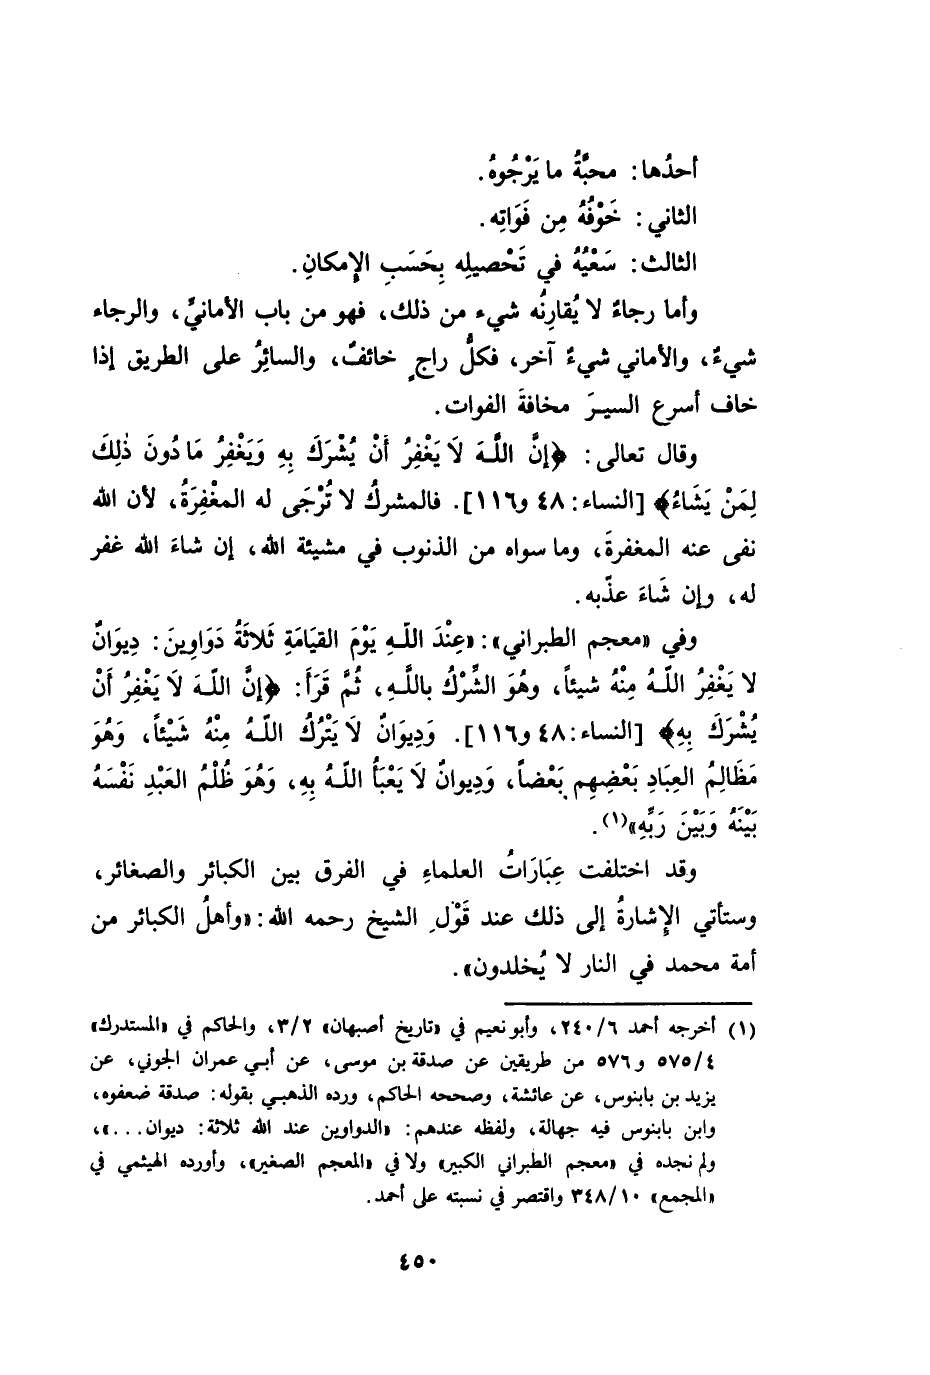 أحدُها: محبَّةُ ما يَرْجُوهُ.
الثاني: خَوْفُهُ مِن فَوَاتِه.
الثالث: سَعْيُهُ في تَحْصيلِه بِحَسَبِ الإِمكانِ.
وأما رجاءٌ لا يُقارِنُه شيء من ذلك، فهو من باب الأمانيِّ، والرجاء
شيءٌ، والأماني شيءٌ آخر، فكلُّ راجٍ خائفٌ، والسائِرُ على الطريق إذا
خاف أسرع السيرَ مخافةَ الفوات.
وقال تعالى: ﴿إِنَّ اللَّهَ لَا يَغْفِرُ أَنْ يُشْرَكَ بِهِ وَيَغْفِرُ مَا دُونَ ذٰلِكَ
لِمَنْ يَشَاءُ﴾ [النساء: ٤٨ و١١٦]. فالمشركُ لا تُرْجَى له المغْفِرَةُ، لأن الله
نفى عنه المغفرةَ، وما سواه من الذنوب في مشيئة الله، إن شاءَ الله غفر
له، وإن شَاءَ عذّبه.
وفي «معجم الطبراني»: «عِنْدَ اللَّهِ يَوْمَ القيَامَةِ ثَلاثَةُ دَوَاوِينَ: دِيوَانٌ
لا يَغْفِرُ اللَّهُ مِنْهُ شيئاً، وهُوَ الشِّرْكُ باللَّهِ، ثُمَّ قَرَأَ: ﴿إِنَّ اللَّهَ لَا يَغْفِرُ أَنْ
يُشْرَكَ بِهِ﴾ [النساء: ٤٨ و١١٦]. وَدِيوَانٌ لَا يَتْرُكُ اللَّهُ مِنْهُ شَيْئاً، وَهُوَ
مَظَالِمُ العِبَادِ بَعْضِهِم بَعْضاً، وَدِيوانٌ لَا يَعْبَأُ اللَّهُ بِهِ، وَهُوَ ظُلْمُ العَبْدِ نَفْسَهُ
بَيْنَهُ وَبَيْنَ رَبِّهِ»(١).
وقد اختلفت عِبَارَاتُ العلماءِ في الفرق بين الكبائر والصغائر،
وستأتي الإِشارةُ إلى ذلك عند قَوْلِ الشيخ رحمه الله: «وأهلُ الكبائر من
أمة محمد في النار لا يُخلدون».
(١) أخرجه أحمد ٢٤٠/٦، وأبو نعيم في «تاريخ أصبهان» ٣/٢، والحاكم في «المستدرك»
٥٧٥/٤ و٥٧٦ من طريقين عن صدقة بن موسى، عن أبي عمران الجوني، عن
يزيد بن بابنوس، عن عائشة، وصححه الحاكم، ورده الذهبي بقوله: صدقة ضعفوه،
وابن بابنوس فيه جهالة، ولفظه عندهم: «الدواوين عند الله ثلاثة: ديوان...»،
ولم نجده في «معجم الطبراني الكبير» ولا في «المعجم الصغير»، وأورده الهيثمي في
«المجمع» ٣٤٨/١٠ واقتصر في نسبته على أحمد.
٤٥٠